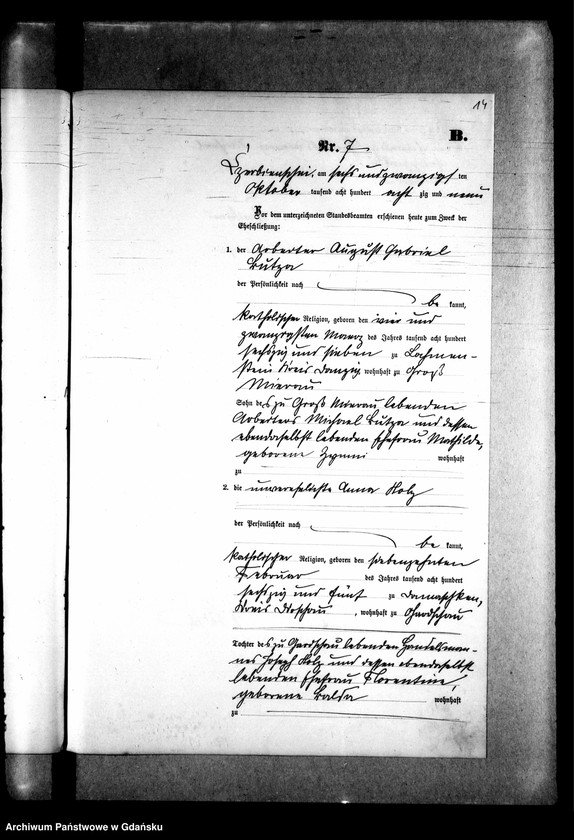 14
B.
Nr. 7
am sechs und zwanzigsten
Oktober tausend acht hundert acht zig und neun
Vor dem unterzeichneten Standesbeamten erschienen heute zum Zweck der
Eheschließung:
1. der Arbeiter August Gabriel
der Persönlichkeit nach
be kannt,
katholischer Religion, geboren den vier und
zwanzigsten März des Jahres tausend acht hundert
sechszig und sieben zu Lahmen-
stein Kreis Danzig, wohnhaft zu Groß
Mierau
Sohn des zu Groß Mierau lebenden
Arbeiters Michael und dessen
ebendaselbst lebenden Ehefrau Mathilde,
geborene wohnhaft
zu
2. die unverehelichte Anna Holz
der Persönlichkeit nach
be kannt,
katholischer Religion, geboren den siebenzehnten
Februar des Jahres tausend acht hundert
sechszig und fünf zu Damaschken,
Kreis Dirschau, wohnhaft zu Gardschau
Tochter des zu Gardschau lebenden Handelsman-
nes Joseph Holz und dessen ebendaselbst
lebenden Ehefrau Florentine,
geborene wohnhaft
zu
Archiwum Państwowe w Gdańsku